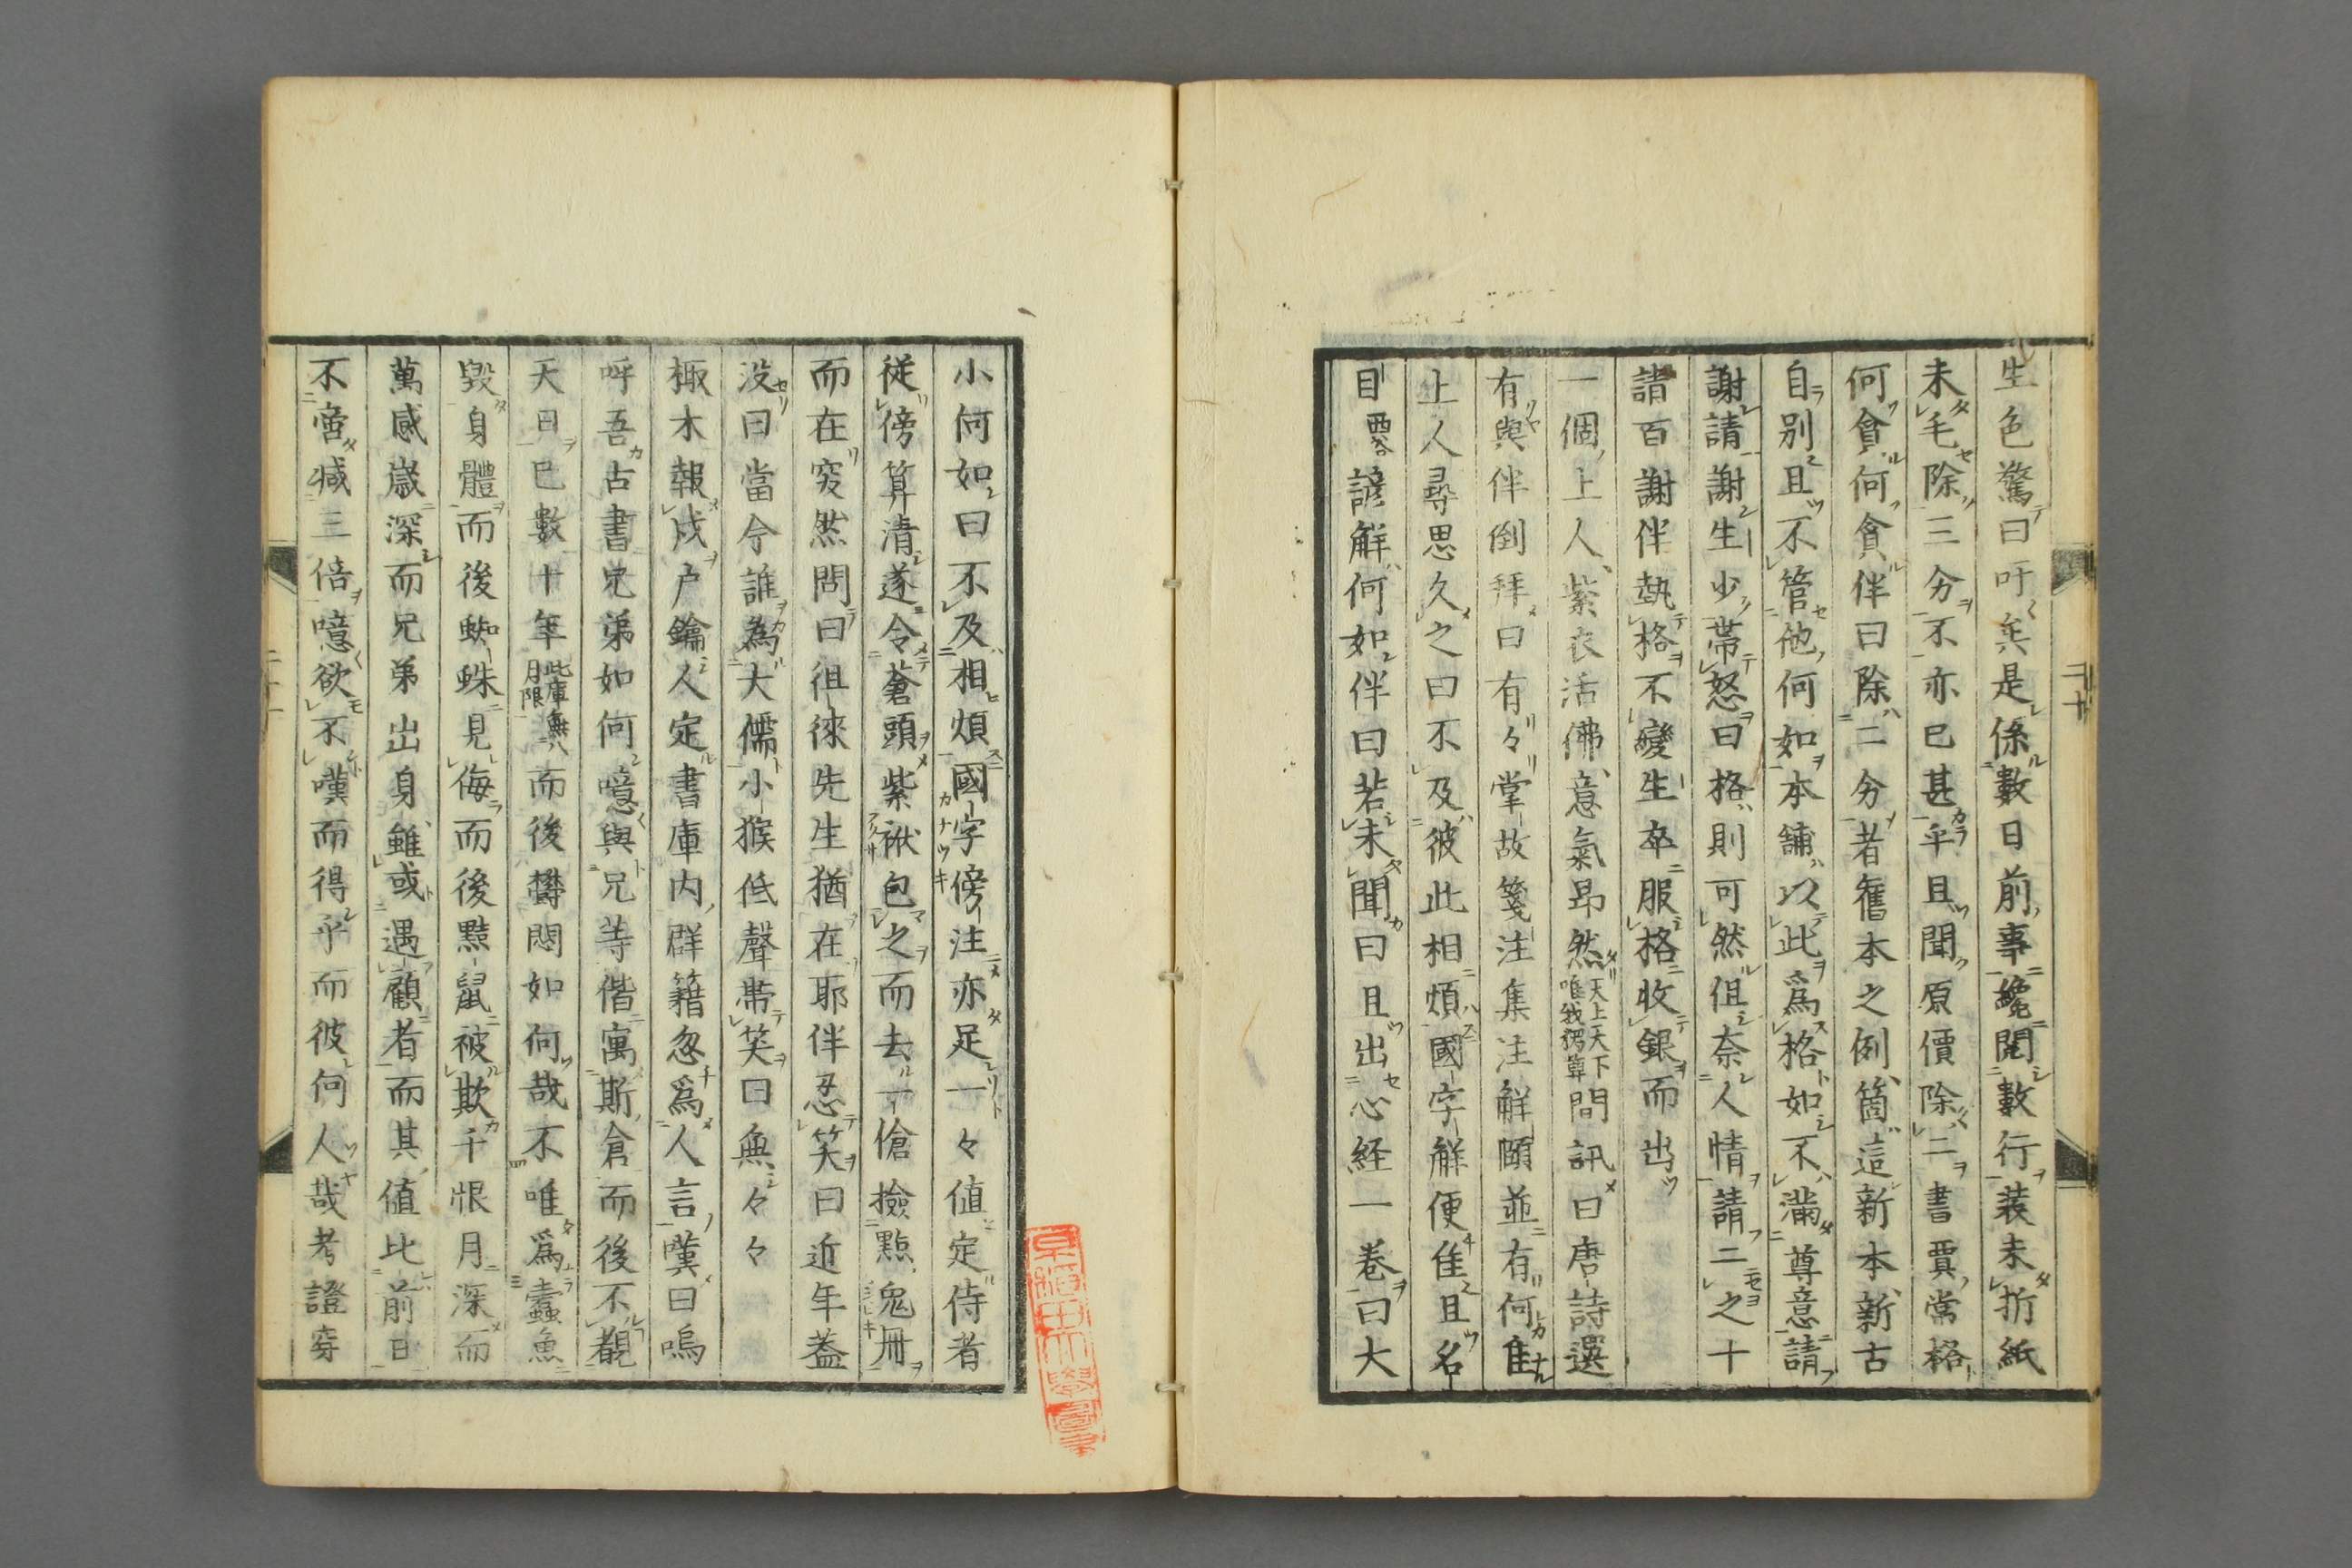 生色驚曰吁矣是係數日前事纔閱數行装未折紙
未毛除三分不亦已甚乎且聞原價除二書賈常格
何貪何貪伴曰除二分者舊本之例箇這新本新古
自別且不管他何如本舗以此爲格如不滿尊意請
謝請謝生少帯怒曰格則可然但奈人情請二之十
請百謝伴執格不變生卒服格收銀而出
一個上人紫衣活佛意氣昂然天上天下唯我猾算問訊曰唐詩選
有與伴倒拜曰有々掌故箋注集注解頤並有何隹
上人尋思久之曰不及彼此相煩國字解便隹且名
目要諺解何如伴曰若未聞曰且出心経一卷曰大
小何如曰不及相煩國字傍注亦足一々値定侍者
従傍算清遂令蒼頭紫袱包之而去一傖撿點鬼冊
而在突然問曰徂徠先生猶在耶伴忍笑曰近年蓋
没曰當今誰為大儒小猴低聲帯笑曰無々々
椒木報戍戸鑰人定書庫内群籍忽爲人言嘆曰嗚
呼吾古書兄弟如何噫與兄等偕寓斯倉而後不覩
天日已數十年此庫無八月限而後欝悶如何哉不唯爲蠹魚
毀身體而後蜘蛛見侮而後黠鼠被欺千恨月深而
萬感歳深而兄弟出身雖或遇顧者而其値比前日
不啻減三倍噫欲不嘆而得乎而彼何人哉考證穿
二十
二十一